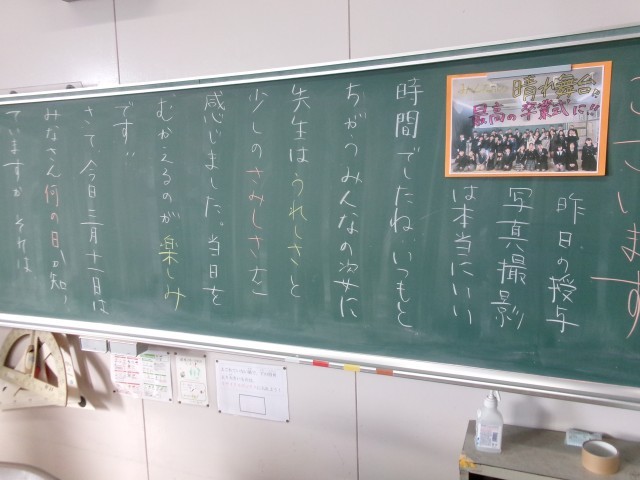 ございます
昨日の授与
写真撮影
は本当にいい
時間でしたね。いつもと
ちがうみんなの姿に
先生はうれしさと
少しのさみしさを
感じました。当日を
むかえるのが楽しみ
です!!
さて、今日三月十一日は
みなさん何の日か知っ
ていますか それは
晴れ舞台
最高の卒業式に!!